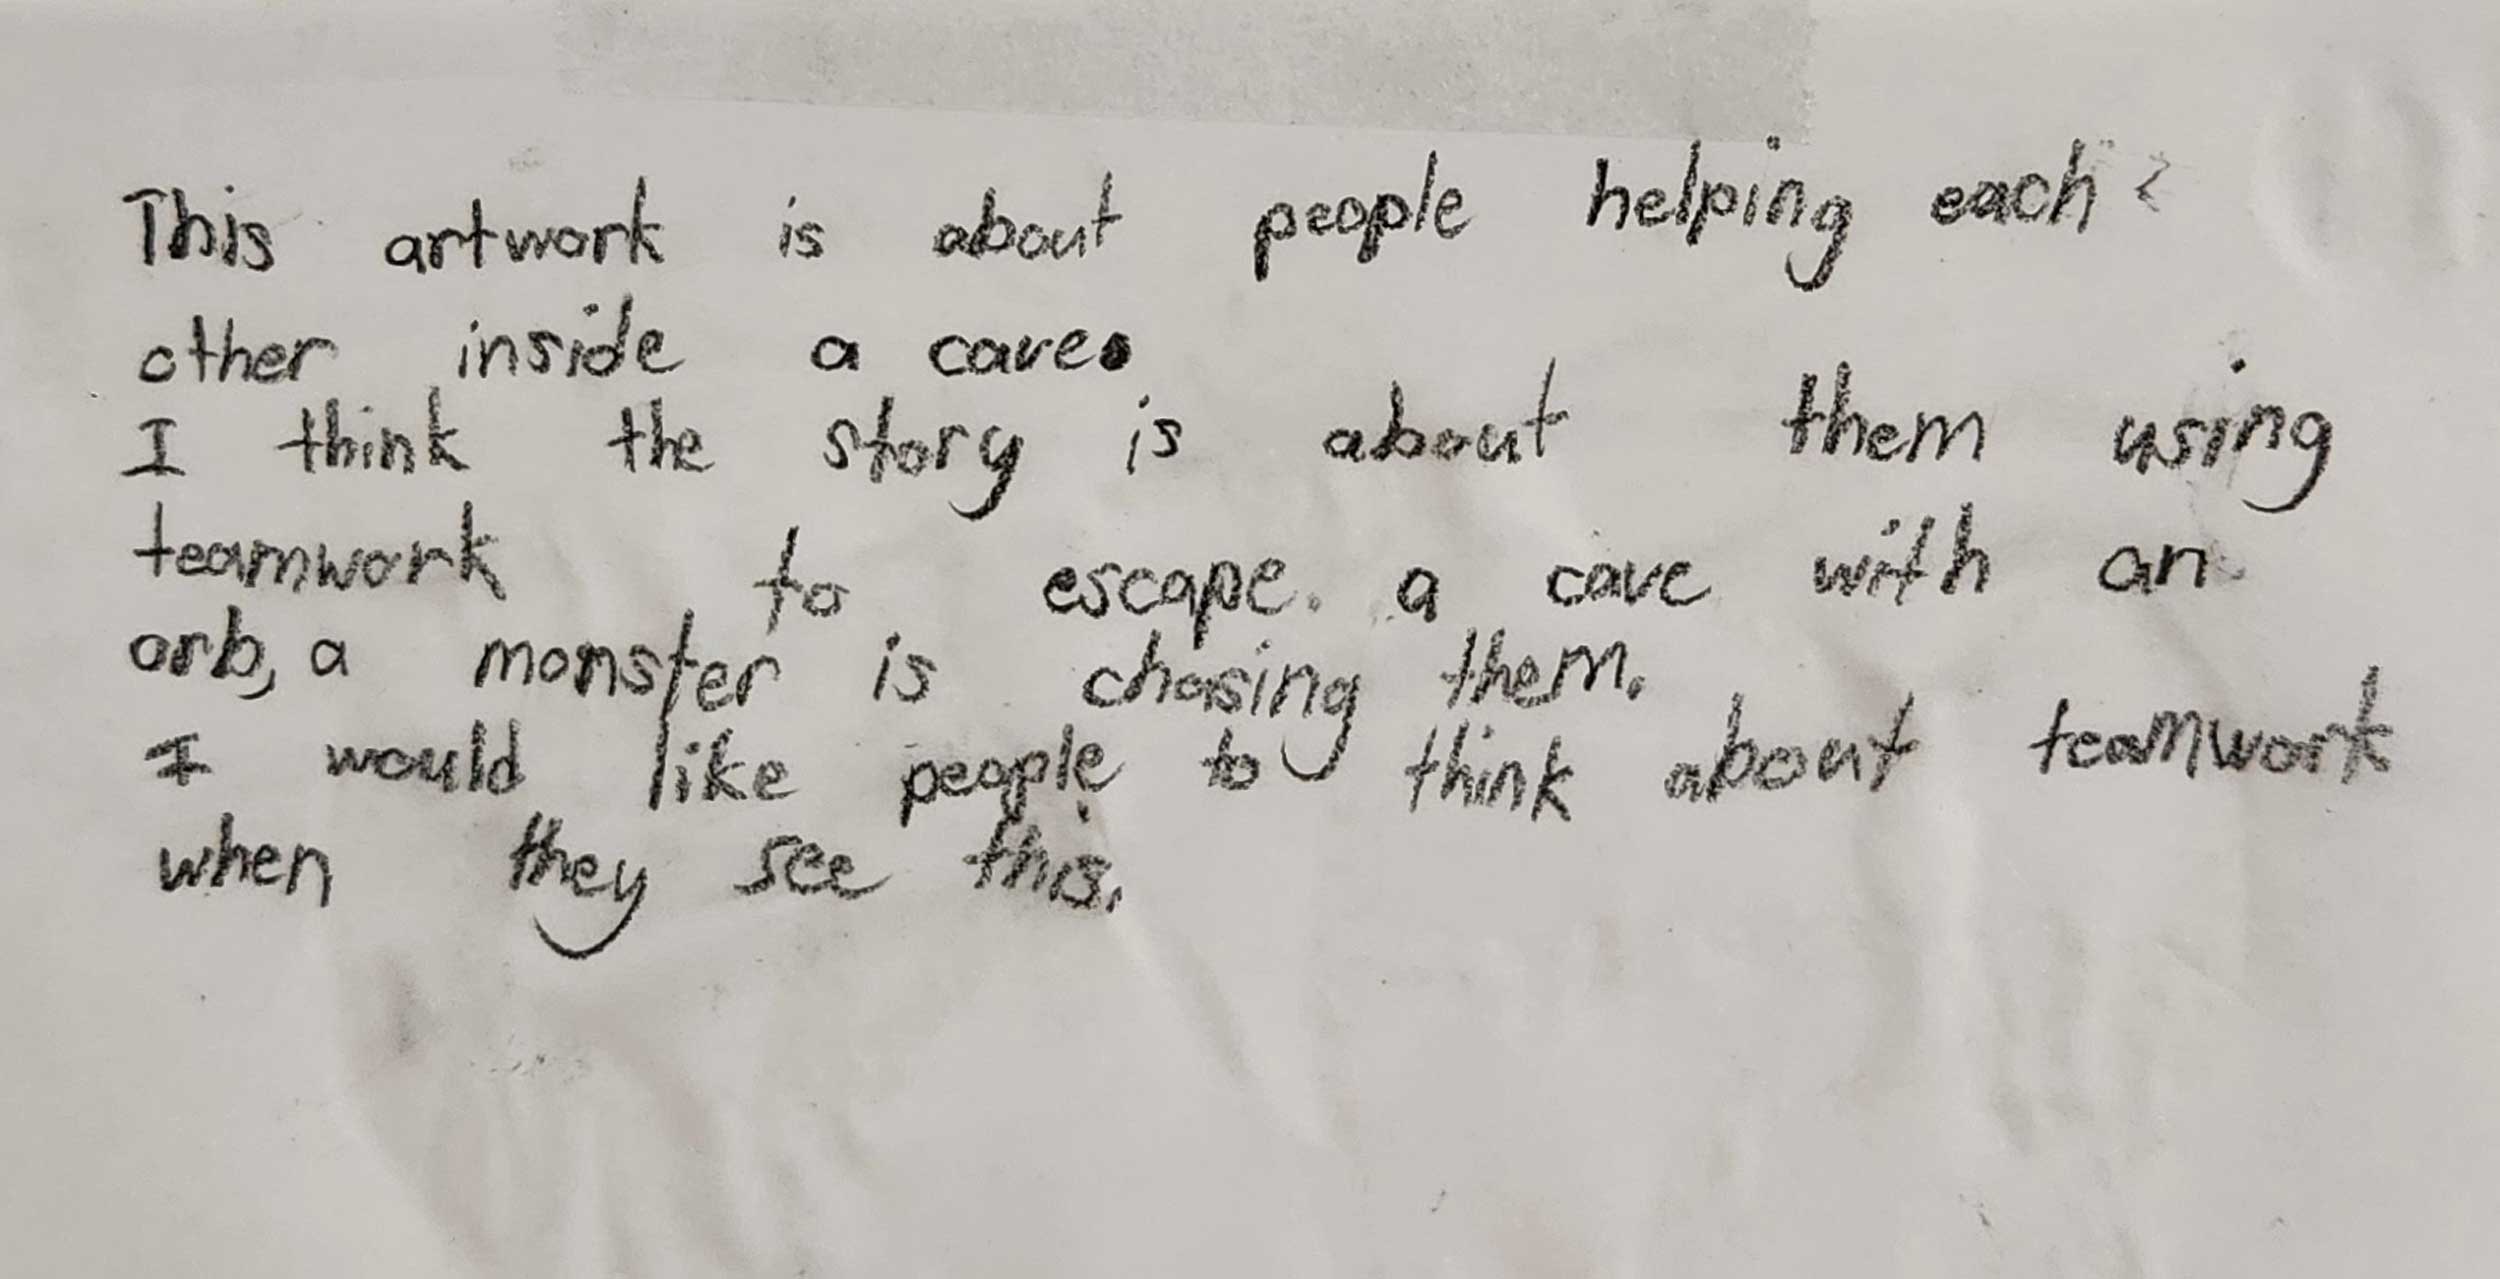 This artwork is about people helping each
other inside a cave.
I think the story is about them using
teamwork to escape. a cave with an
orb, a monster is chasing them.
I would like people to think about teamwork
when they see this.